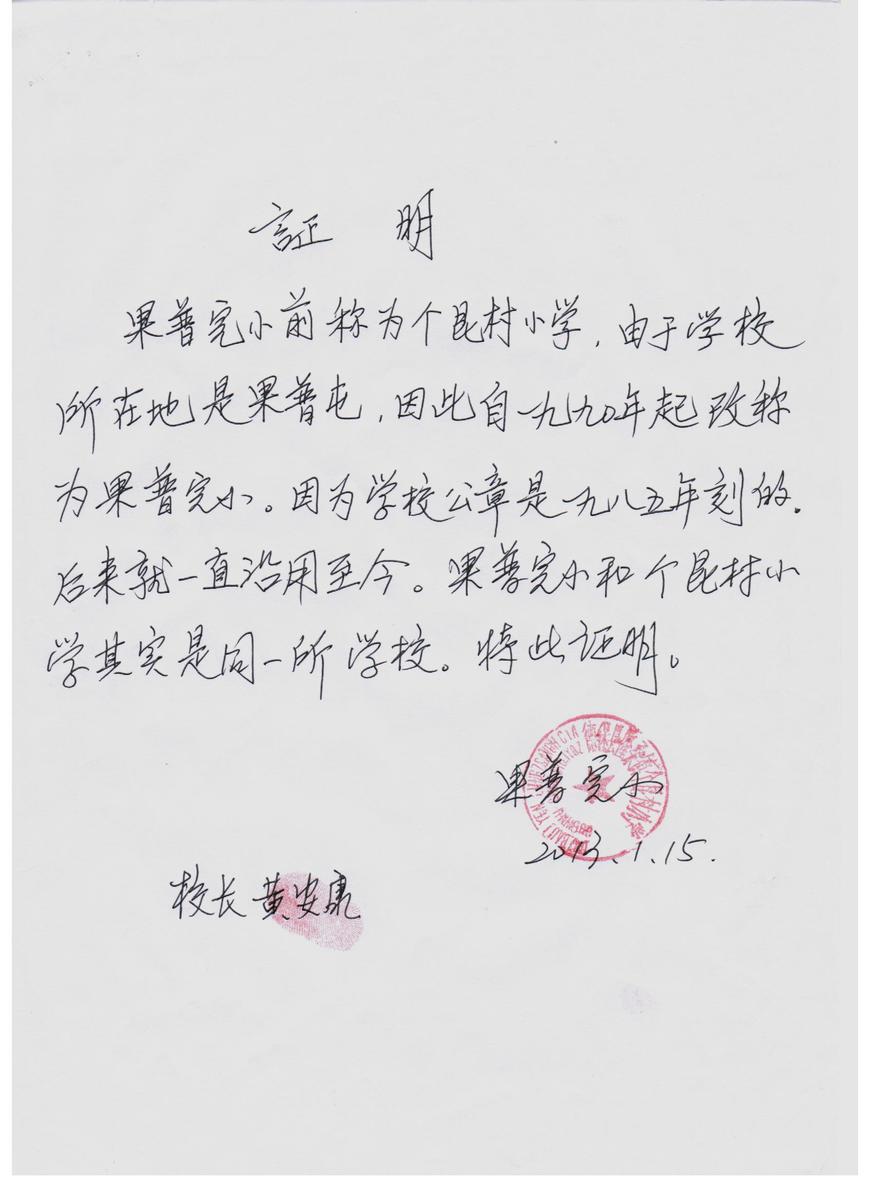 証 明
果普完小前称为个昆村小学,由于学校
所在地是果普屯,因此自一九九〇年起改称
为果普完小。因为学校公章是一九八五年刻的.
后来就一直沿用至今。果普完小和个昆村小
学其实是同一所学校。特此证明。
果普完小
2013.1.15.
校长黄安康